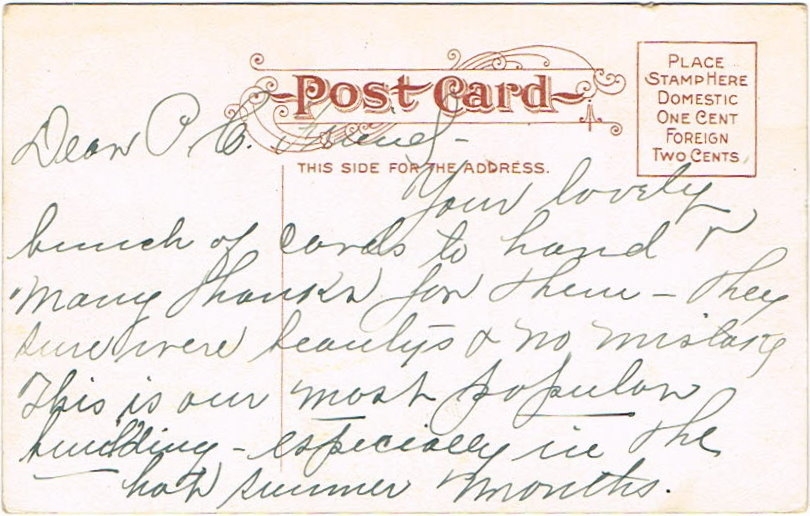 Post Card
PLACE
STAMP HERE
DOMESTIC
ONE CENT
FOREIGN
TWO CENTS
THIS SIDE FOR THE ADDRESS.
Dear P. C. Friend -
Your lovely
bunch of cards to hand &
many thanks for them - they
sure were beautys & no mistake
This is our most popular
building - especially in the
hot summer months.